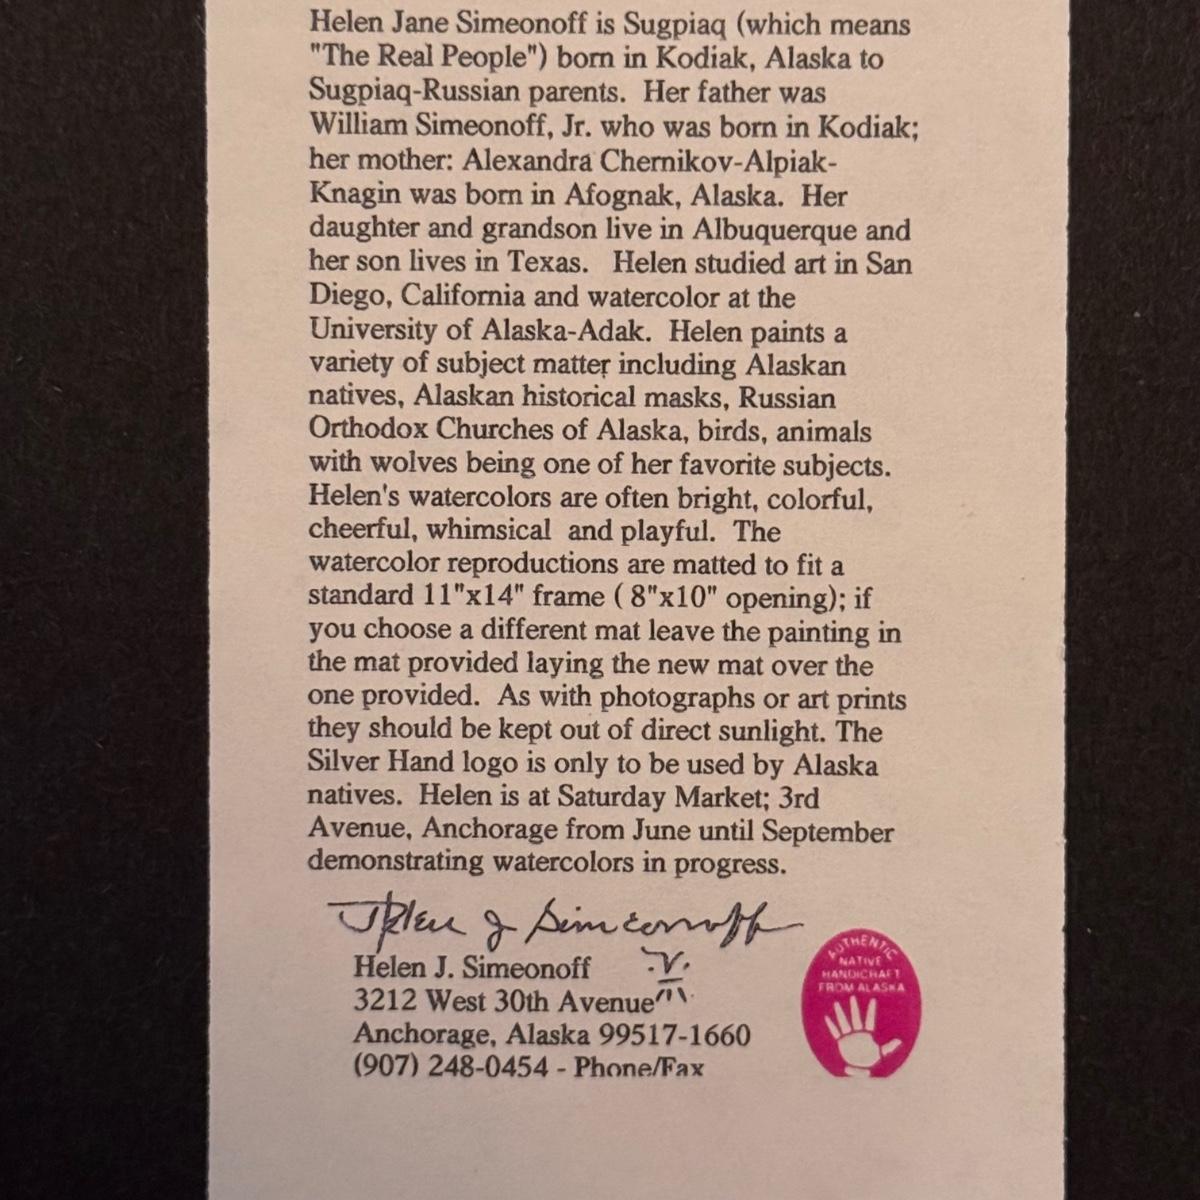 Helen Jane Simeonoff is Sugpiaq (which means
"The Real People") born in Kodiak, Alaska to
Sugpiaq-Russian parents.  Her father was
William Simeonoff, Jr. who was born in Kodiak;
her mother: Alexandra Chernikov-Alpiak-
Knagin was born in Afognak, Alaska.  Her
daughter and grandson live in Albuquerque and
her son lives in Texas.   Helen studied art in San
Diego, California and watercolor at the
University of Alaska-Adak.  Helen paints a
variety of subject matter including Alaskan
natives, Alaskan historical masks, Russian
Orthodox Churches of Alaska, birds, animals
with wolves being one of her favorite subjects.
Helen's watercolors are often bright, colorful,
cheerful, whimsical  and playful.  The
watercolor reproductions are matted to fit a
standard 11"x14" frame ( 8"x10" opening); if
you choose a different mat leave the painting in
the mat provided laying the new mat over the
one provided.  As with photographs or art prints
they should be kept out of direct sunlight. The
Silver Hand logo is only to be used by Alaska
natives.  Helen is at Saturday Market; 3rd
Avenue, Anchorage from June until September
demonstrating watercolors in progress.
Helen J Simeonoff
Helen J. Simeonoff
3212 West 30th Avenue
Anchorage, Alaska 99517-1660
(907) 248-0454 - Phone/Fax
AUTHENTIC
NATIVE
HANDICRAFT
FROM ALASKA